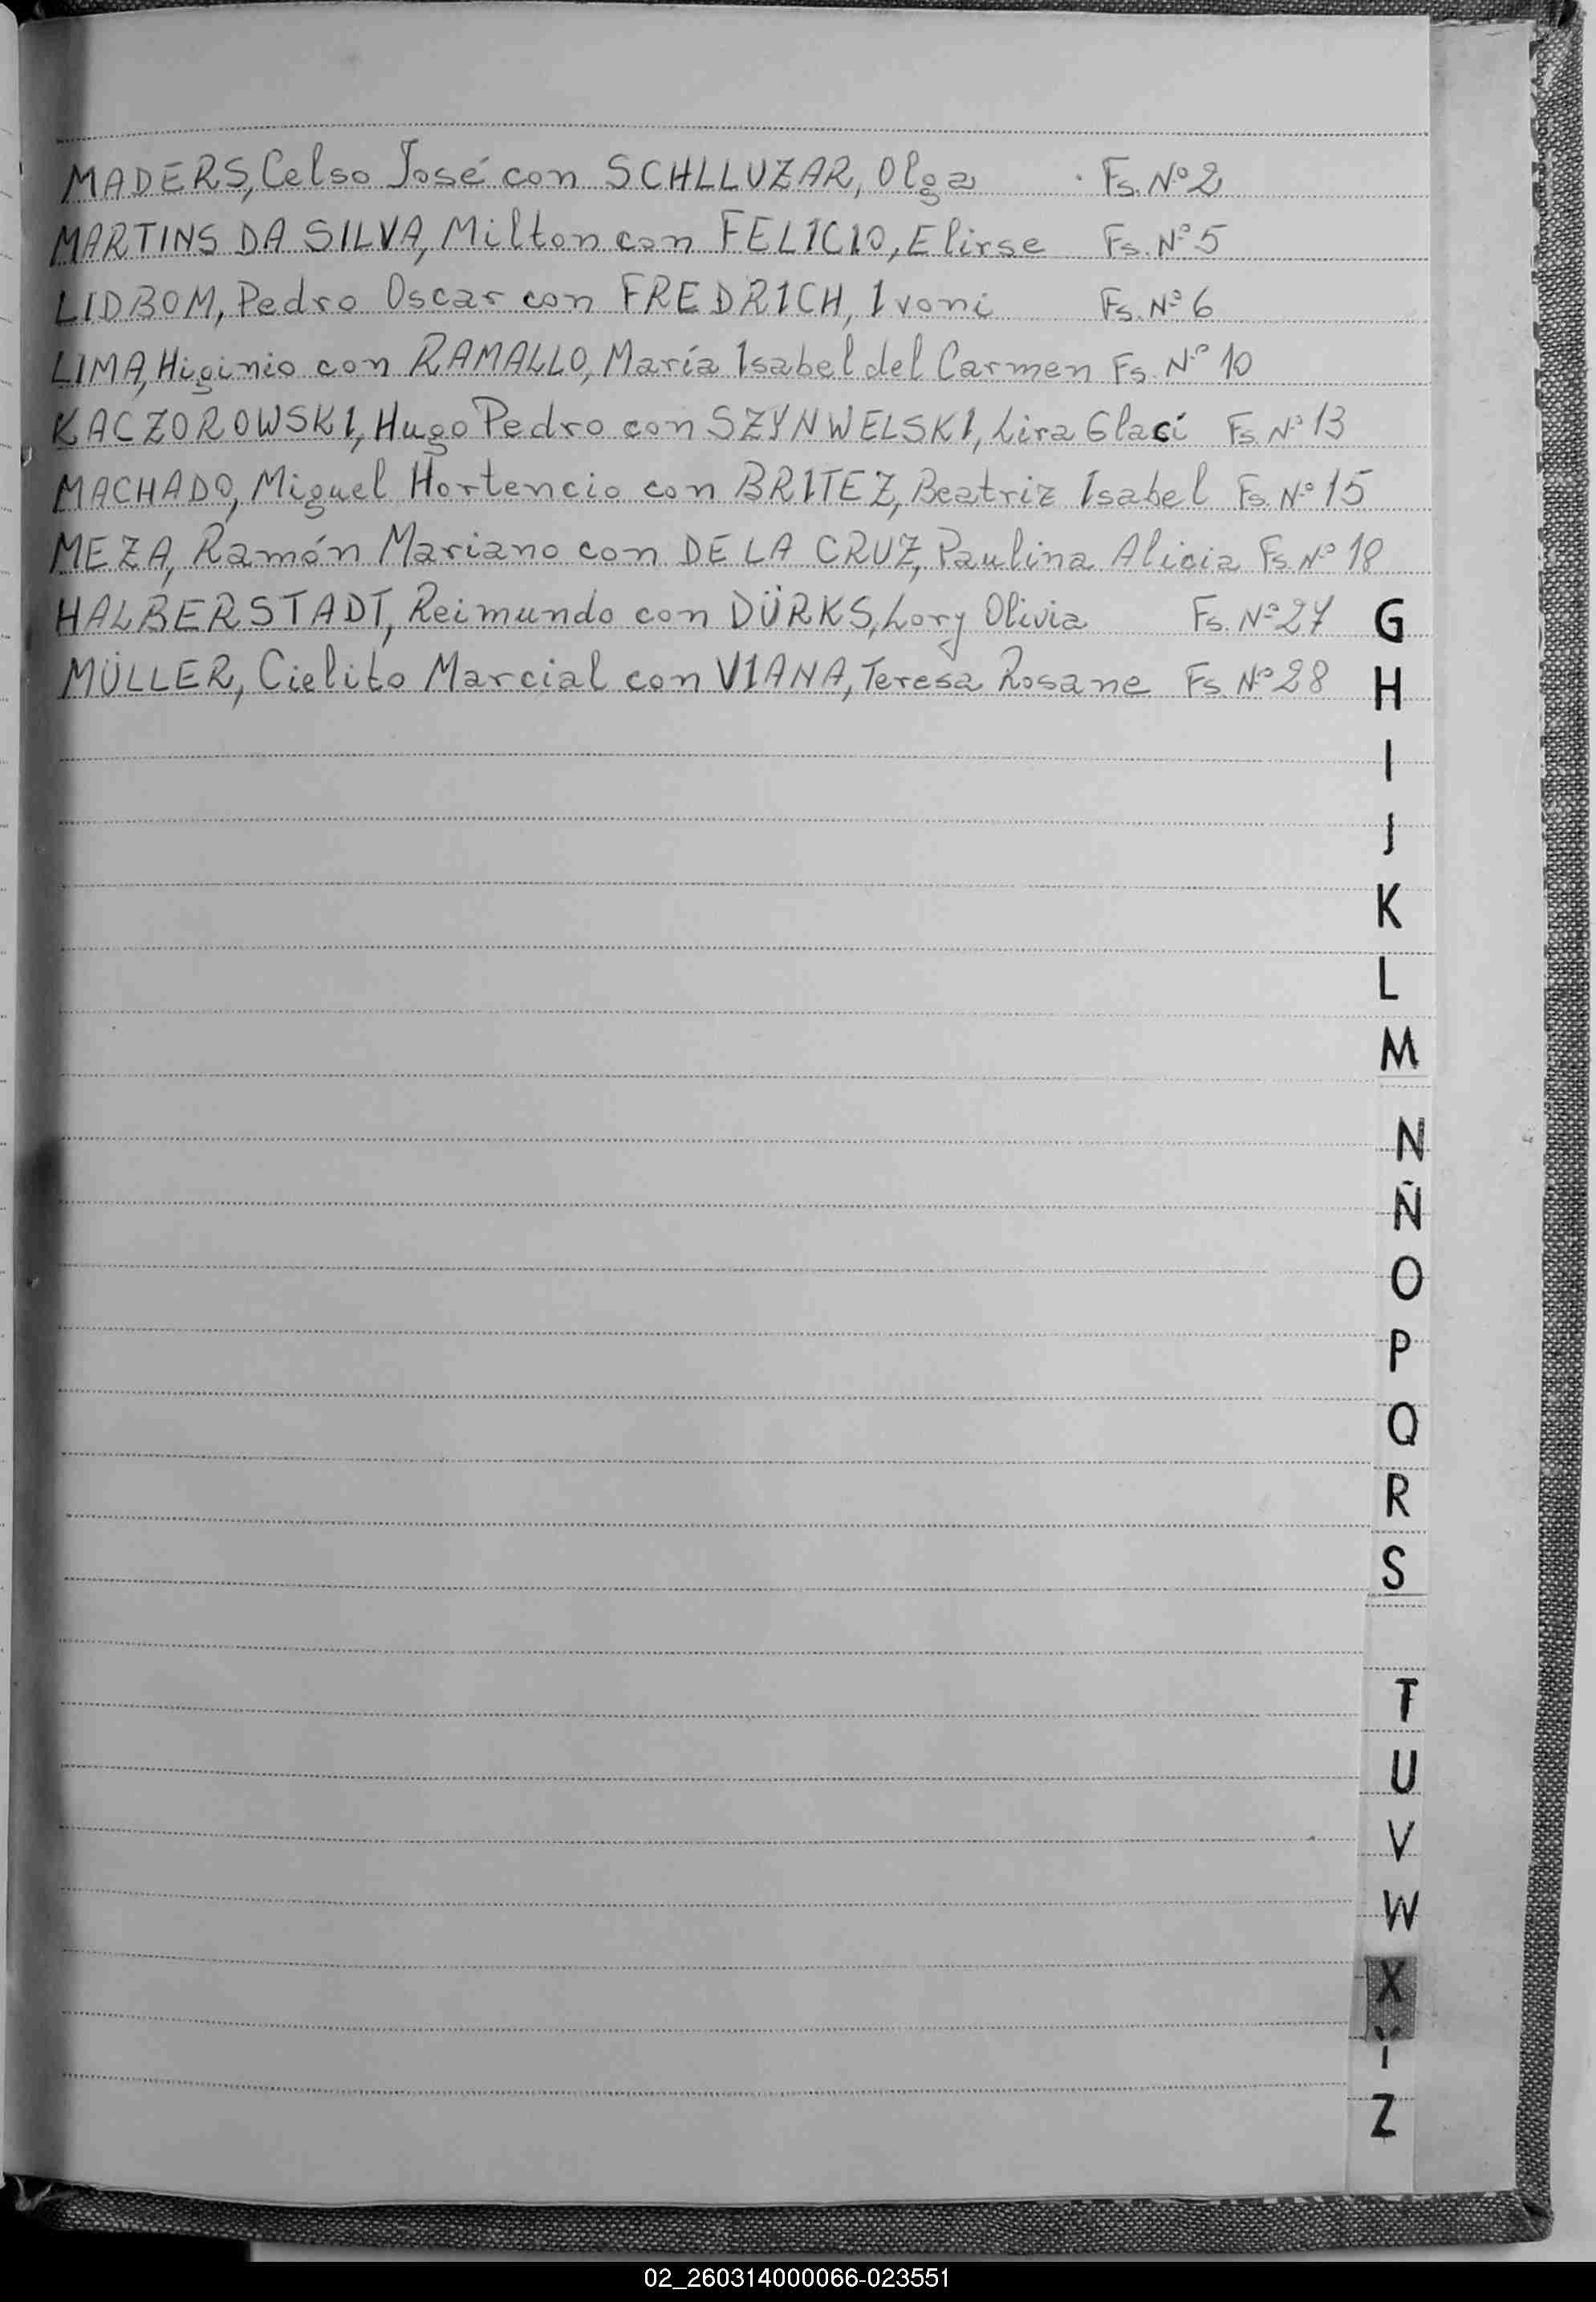 MADERS, Celso José con SCHLLUZAR, Olga Fs. Nº 2
MARTINS DA SILVA, Milton con FELICIO, Elirse Fs. Nº 5
LIDBOM, Pedro Oscar con FREDRICH, Ivoni Fs. Nº 6
LIMA, Higinio con RAMALLO, María Isabel del Carmen Fs. Nº 10
KACZOROWSKI, Hugo Pedro con SZYNWELSKI, Lira Glaci Fs. Nº 13
MACHADO, Miguel Hortencio con BRITEZ, Beatriz Isabel Fs. Nº 15
MEZA, Ramón Mariano con DE LA CRUZ, Paulina Alicia Fs. Nº 18
HALBERSTADT, Reimundo con DÜRKS, Lory Olivia Fs. Nº 27
MÜLLER, Cielito Marcial con VIANA, Teresa Rosane Fs. Nº 28
G
H
I
J
K
L
M
N
Ñ
O
P
Q
R
S
T
U
V
W
X
Y
Z
02_260314000066-023551